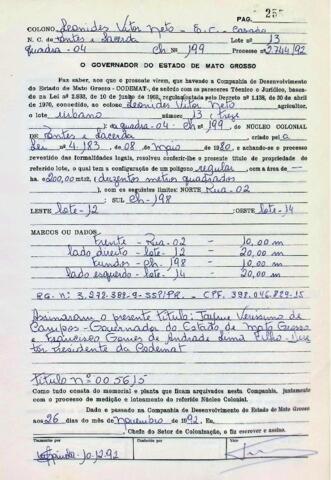 PAG. 255
COLONO Leonides Vitor Neto - B.C. - Casado
N. C. de Pontes e Lacerda Lote nº 13
quadra-04 Ch Nº 199 Processo nº 2.744/92
O GOVERNADOR DO ESTADO DE MATO GROSSO
Faz saber, aos que o presente virem, que havendo a Companhia de Desenvolvimento
do Estado de Mato Grosso - CODEMAT-, de acordo com os pareceres Técnico e Jurídico, baseados
na Lei nº 2.538, de 10 de junho de 1965, regulamentada pelo Decreto nº 1.138, de 30 de abril
de 1970, concedido ao colono Leonides Vitor Neto
o lote urbano número: 13 (treze)
da quadra-04 Ch 199, do NÚCLEO COLONIAL
de Pontes e Lacerda criado pela
Lei 4.183, de 08, de Maio de 80, e achando-se o processo
revestido das formalidades legais, resolveu conferir-lhe o presente título de propriedade
do referido lote, o qual tem a configuração de um polígono regular, com a área de —
ha. 200,00 mts. (duzentos metros quadrados
), com os seguintes limites: NORTE Rua-02
SUL Ch-198
LESTE lote-12 OESTE lote-14
MARCOS OU DADOS
frente - Rua-02 - 10,00 m
lado direito - lote-12 - 20,00 m
fundos - Ch. 198 - 10,00 m
lado esquerdo - lote-14 - 20,00 m
RG. nº: 3.272.389-9-SSP/PR. - CPF. 398.046.829-15
Assinaram o presente Título: Jayme Verissimo de
Campos - Governador do Estado de Mato Grosso
e Francisco Gomes de Andrade Lima Filho - Dire
tor Presidente da Codemat
Título nº 005615
Como tudo consta do memorial e planta que ficam arquivados nesta Companhia, juntamente
com o processo de medição e loteamento do referido Núcleo Colonial.
Dado e passado na Companhia de Desenvolvimento do Estado de Mato Grosso
aos 26 dias do mês de novembro de 1992. Eu,
Chefe do Setor de Colonização, o fiz escrever e assino.
10.12.92